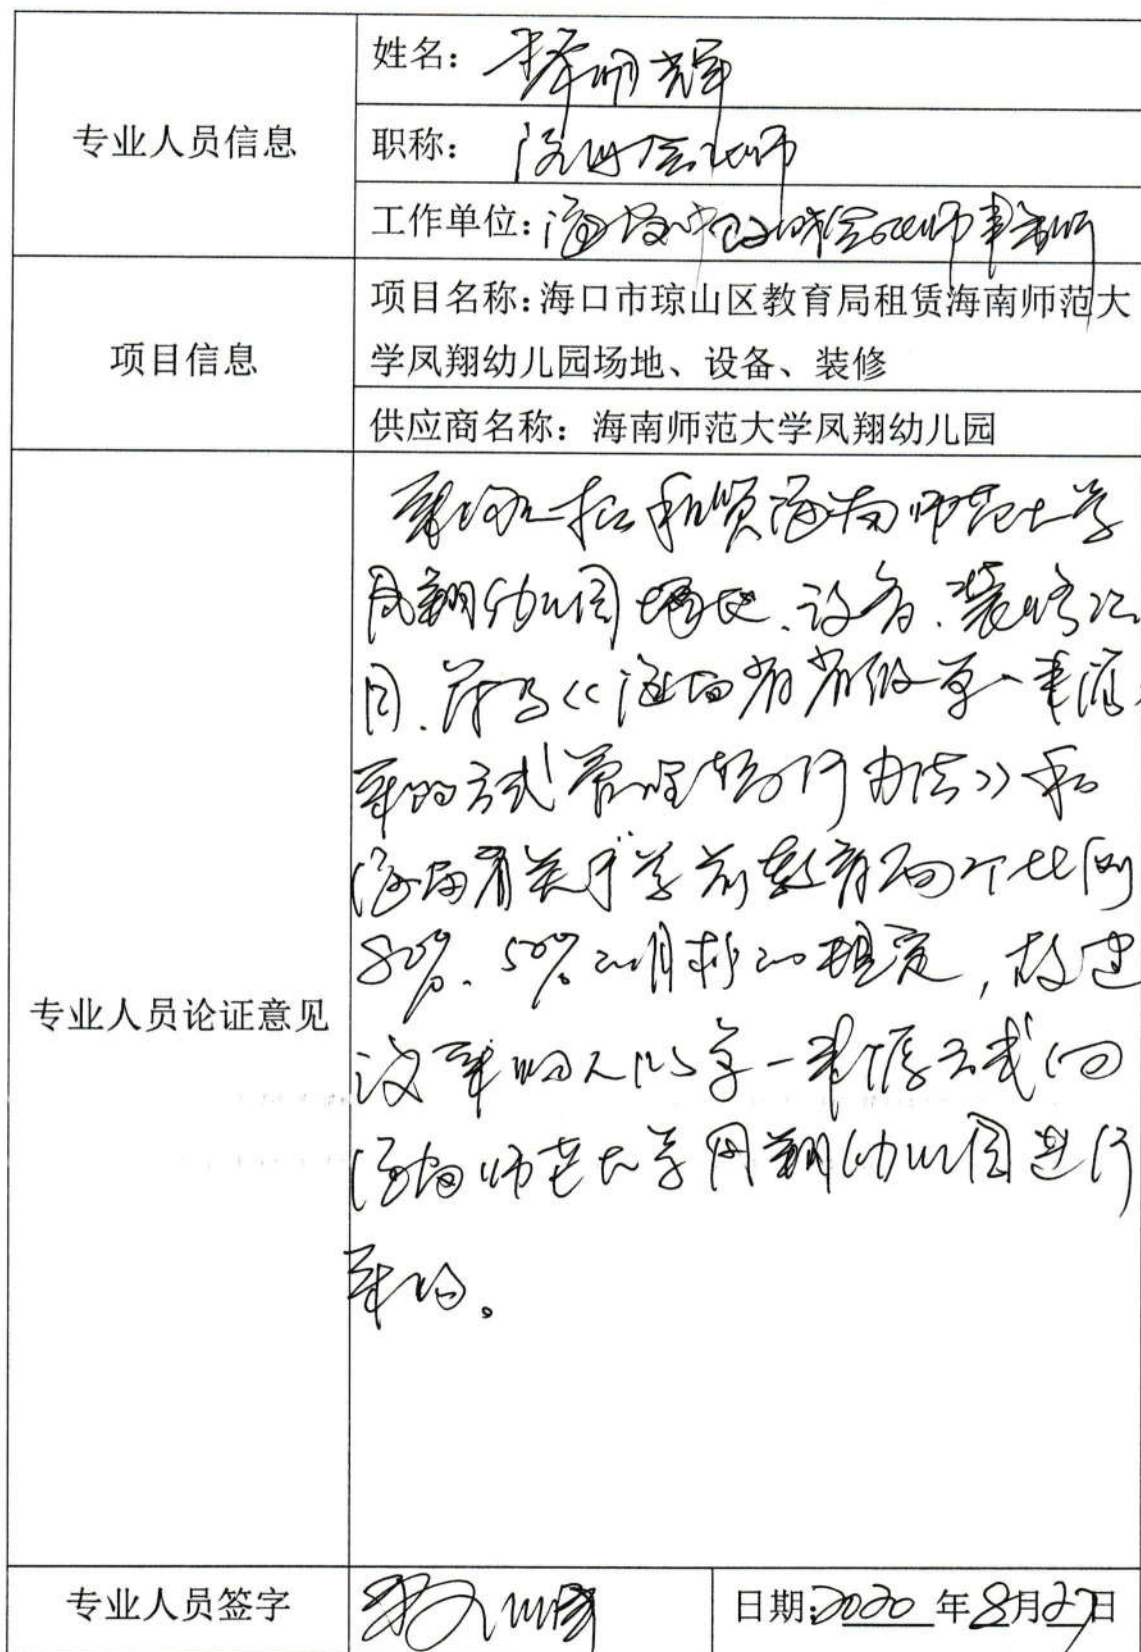 专业人员信息
姓名：
职称：注册会计师
工作单位：海南中 会计师事务所
项目信息
项目名称：海口市琼山区教育局租赁海南师范大
学凤翔幼儿园场地、设备、装修
供应商名称：海南师范大学凤翔幼儿园
专业人员论证意见
租赁海南师范大学
凤翔幼儿园场地、设备、装修项
目，符合《海南省省级单一来源采
购方式管理暂行办法》和
海南省关于"学前教育两个比例
80%、50%的目标的规定，故建
议采购人以单一来源方式向
海南师范大学凤翔幼儿园进行
采购。
专业人员签字
日期：2020年8月27日